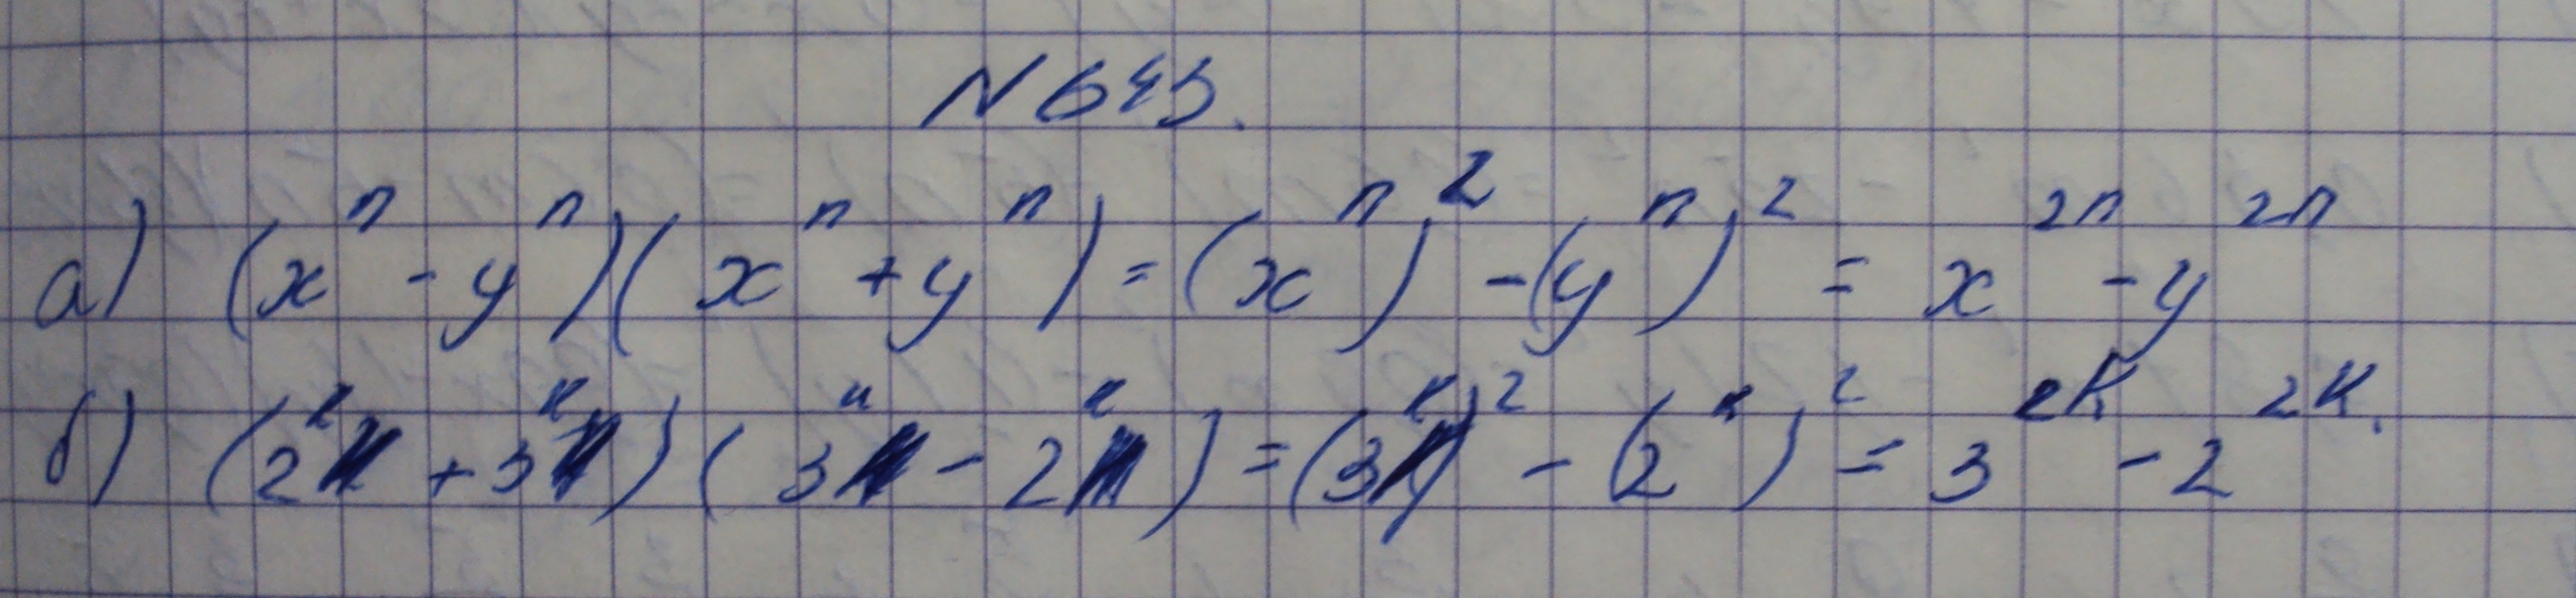 N 645.
а) (xⁿ - yⁿ)(xⁿ + yⁿ) = (xⁿ)² - (yⁿ)² = x²ⁿ - y²ⁿ
б) (2ᵏ + 3ᵏ)(3ᵏ - 2ᵏ) = (3ᵏ)² - (2ᵏ)² = 3²ᵏ - 2²ᵏ.